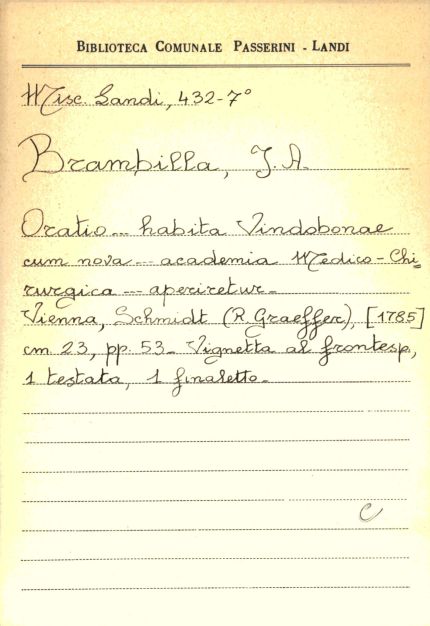 BIBLIOTECA COMUNALE PASSERINI - LANDI
Misc. Landi, 432-7°
Brambilla, J. A.
Oratio ... habita Vindobonae
cum nova ... academia Medico-Chi=
rurgica ... aperiretur.
Vienna, Schmidt (R. Graeffer), [1785]
cm 23, pp. 53. Vignetta al frontesp.,
1 testata, 1 finaletto.
C